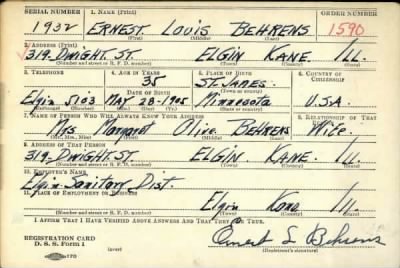 SERIAL NUMBER 1. NAME (Print) ORDER NUMBER
1932 ERNEST LOUIS BEHRENS 1590
(First) (Middle) (Last)
2. ADDRESS (Print)
319-DWIGHT ST. ELGIN KANE ILL.
(Number and street or R. F. D. number) (Town) (County) (State)
3. TELEPHONE 4. AGE IN YEARS 5. PLACE OF BIRTH 6. COUNTRY OF CITIZENSHIP
35 ST. JAMES
DATE OF BIRTH (Town or county)
Elgin 5103 MAY 28-1905 Minnesota U.S.A.
(Exchange) (Number) (Mo.) (Day) (Yr.) (State or country)
7. NAME OF PERSON WHO WILL ALWAYS KNOW YOUR ADDRESS 8. RELATIONSHIP OF THAT PERSON
Mrs Margaret Olive BEHRENS Wife
(Mr., Mrs., Miss) (First) (Middle) (Last)
9. ADDRESS OF THAT PERSON
319-DWIGHT ST. ELGIN KANE Ill
(Number and street or R. F. D. number) (Town) (County) (State)
10. EMPLOYER'S NAME
Elgin-Sanitary Dist.
11. PLACE OF EMPLOYMENT OR BUSINESS
Elgin Kane Ill.
(Number and street or R. F. D. number) (Town) (County) (State)
I AFFIRM THAT I HAVE VERIFIED ABOVE ANSWERS AND THAT THEY ARE TRUE.
REGISTRATION CARD
D. S. S. Form 1 (over) Ernest L Behrens
(Registrant's signature)